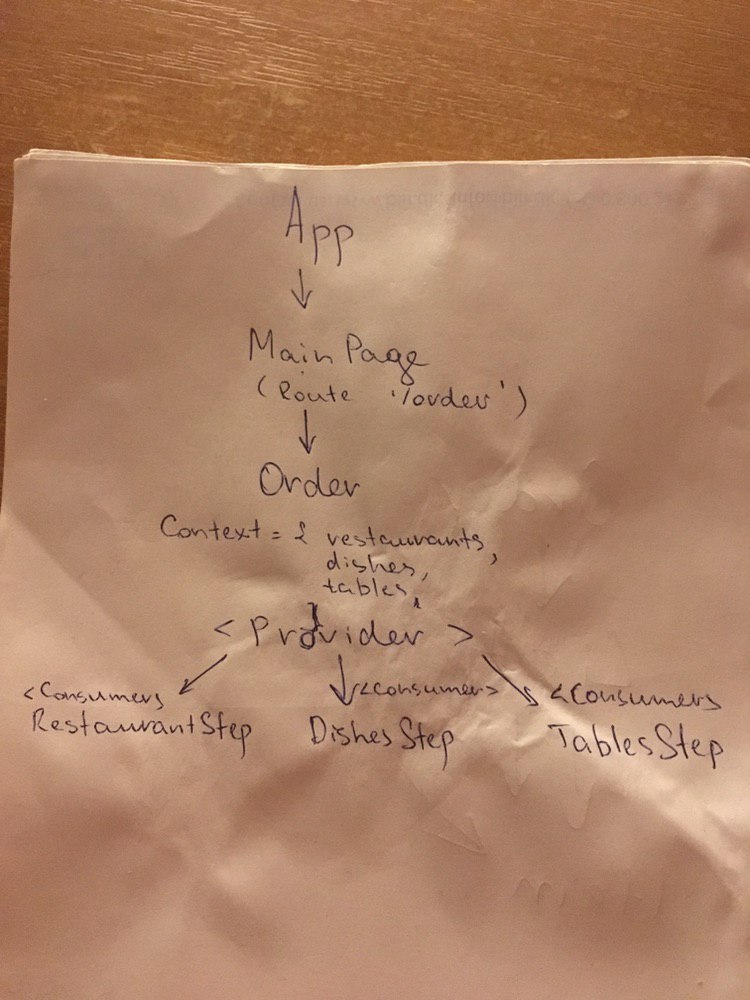 App
Main Page
(Route '/order')
Order
Context = { restaurants,
dishes,
tables,
}
< Provider >
<Consumer>
RestaurantStep
<consumer>
DishesStep
<Consumer>
TablesStep